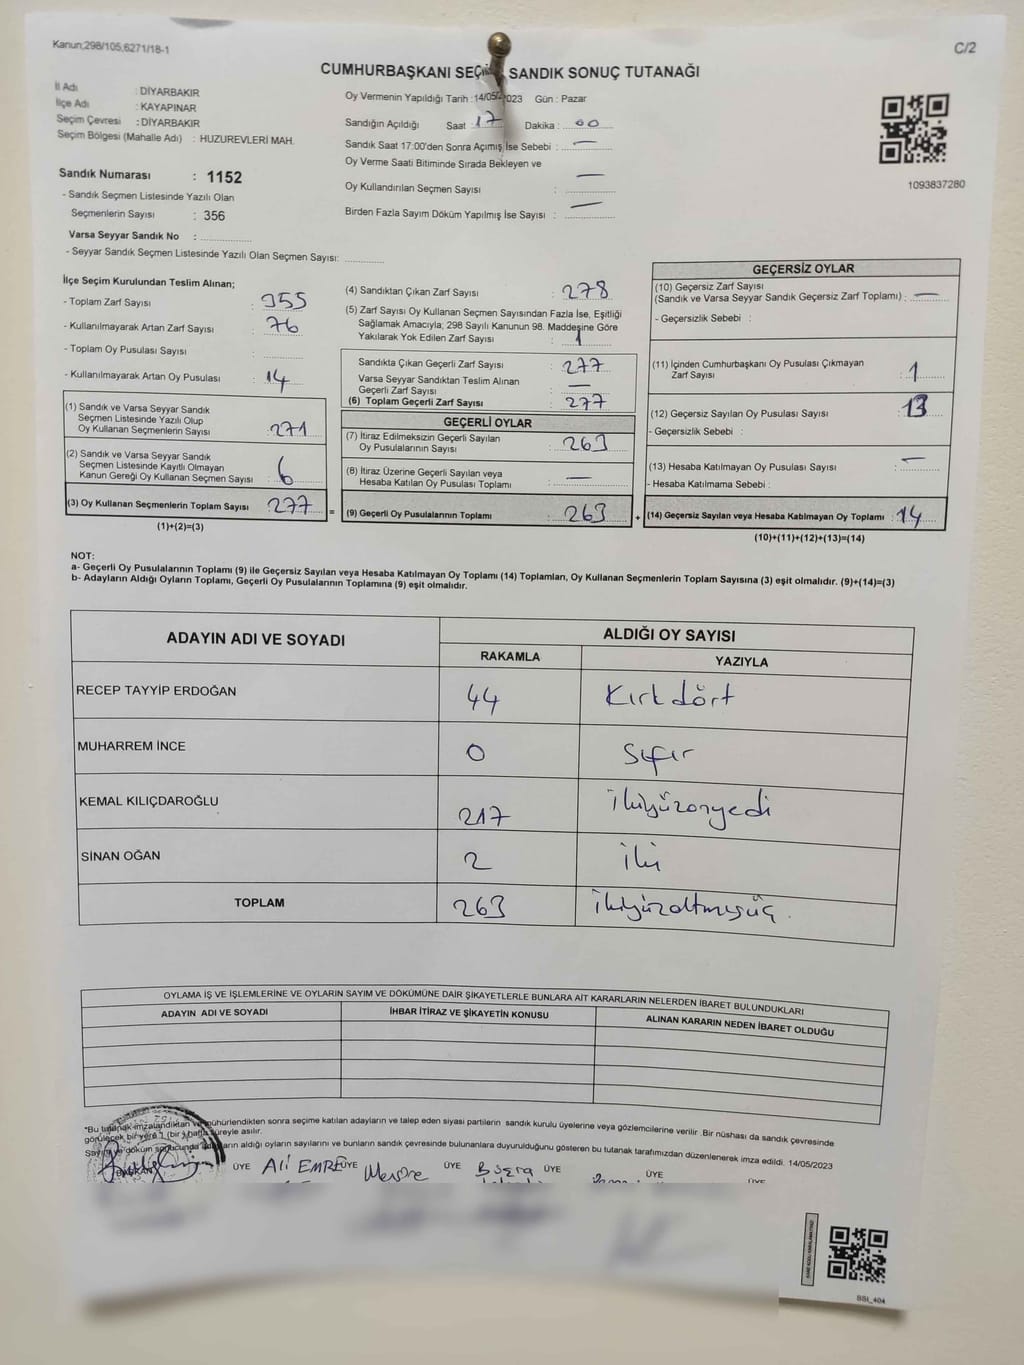 Kanun;298/105,6271/18-1
C/2
CUMHURBAŞKANI SEÇİM SANDIK SONUÇ TUTANAĞI
İl Adı : DİYARBAKIR
İlçe Adı : KAYAPINAR
Seçim Çevresi : DİYARBAKIR
Seçim Bölgesi (Mahalle Adı) : HUZUREVLERİ MAH.
Sandık Numarası : 1152
- Sandık Seçmen Listesinde Yazılı Olan
Seçmenlerin Sayısı : 356
Varsa Seyyar Sandık No : ..............
- Seyyar Sandık Seçmen Listesinde Yazılı Olan Seçmen Sayısı: ............
Oy Vermenin Yapıldığı Tarih :14/05/2023 Gün : Pazar
Sandığın Açıldığı Saat : 17 Dakika : 00
Sandık Saat 17:00'den Sonra Açımış İse Sebebi : —
Oy Verme Saati Bitiminde Sırada Bekleyen ve
Oy Kullandırılan Seçmen Sayısı : —
Birden Fazla Sayım Döküm Yapılmış İse Sayısı : —
1093837280
İlçe Seçim Kurulundan Teslim Alınan;
- Toplam Zarf Sayısı : 355
- Kullanılmayarak Artan Zarf Sayısı : 76
- Toplam Oy Pusulası Sayısı : ............
- Kullanılmayarak Artan Oy Pusulası : 14
(1) Sandık ve Varsa Seyyar Sandık
Seçmen Listesinde Yazılı Olup
Oy Kullanan Seçmenlerin Sayısı : 271
(2) Sandık ve Varsa Seyyar Sandık
Seçmen Listesinde Kayıtlı Olmayan
Kanun Gereği Oy Kullanan Seçmen Sayısı : 6
(3) Oy Kullanan Seçmenlerin Toplam Sayısı : 277
(1)+(2)=(3)
=
(4) Sandıktan Çıkan Zarf Sayısı : 278
(5) Zarf Sayısı Oy Kullanan Seçmen Sayısından Fazla İse, Eşitliği
Sağlamak Amacıyla; 298 Sayılı Kanunun 98. Maddesine Göre
Yakılarak Yok Edilen Zarf Sayısı : 1
Sandıkta Çıkan Geçerli Zarf Sayısı : 277
Varsa Seyyar Sandıktan Teslim Alınan
Geçerli Zarf Sayısı : —
(6) Toplam Geçerli Zarf Sayısı : 277
GEÇERLİ OYLAR
(7) İtiraz Edilmeksizin Geçerli Sayılan
Oy Pusulalarının Sayısı : 263
(8) İtiraz Üzerine Geçerli Sayılan veya
Hesaba Katılan Oy Pusulası Toplamı : —
(9) Geçerli Oy Pusulalarının Toplamı : 263
+
GEÇERSİZ OYLAR
(10) Geçersiz Zarf Sayısı
(Sandık ve Varsa Seyyar Sandık Geçersiz Zarf Toplamı) : —
- Geçersizlik Sebebi :
(11) İçinden Cumhurbaşkanı Oy Pusulası Çıkmayan
Zarf Sayısı : 1
(12) Geçersiz Sayılan Oy Pusulası Sayısı : 13
- Geçersizlik Sebebi :
(13) Hesaba Katılmayan Oy Pusulası Sayısı : —
- Hesaba Katılmama Sebebi :
(14) Geçersiz Sayılan veya Hesaba Katılmayan Oy Toplamı : 14
(10)+(11)+(12)+(13)=(14)
NOT:
a- Geçerli Oy Pusulalarının Toplamı (9) ile Geçersiz Sayılan veya Hesaba Katılmayan Oy Toplamı (14) Toplamları, Oy Kullanan Seçmenlerin Toplam Sayısına (3) eşit olmalıdır. (9)+(14)=(3)
b- Adayların Aldığı Oyların Toplamı, Geçerli Oy Pusulalarının Toplamına (9) eşit olmalıdır.
ADAYIN ADI VE SOYADI
ALDIĞI OY SAYISI
RAKAMLA YAZIYLA
RECEP TAYYİP ERDOĞAN 44 Kırk dört
MUHARREM İNCE 0 Sıfır
KEMAL KILIÇDAROĞLU 217 ikiyüzonyedi
SİNAN OĞAN 2 iki
TOPLAM 263 ikiyüzaltmışüç.
OYLAMA İŞ VE İŞLEMLERİNE VE OYLARIN SAYIM VE DÖKÜMÜNE DAİR ŞİKAYETLERLE BUNLARA AİT KARARLARIN NELERDEN İBARET BULUNDUKLARI
ADAYIN ADI VE SOYADI İHBAR İTİRAZ VE ŞİKAYETİN KONUSU ALINAN KARARIN NEDEN İBARET OLDUĞU
*Bu tutanak imzalandıktan ve mühürlendikten sonra seçime katılan adayların ve talep eden siyasi partilerin sandık kurulu üyelerine veya gözlemcilerine verilir .Bir nüshası da sandık çevresinde
görülecek bir yere 1 (bir) hafta süreyle asılır.
Sayım ve döküm sonucunda adayların aldığı oyların sayılarını ve bunların sandık çevresinde bulunanlara duyurulduğunu gösteren bu tutanak tarafımızdan düzenlenerek imza edildi. 14/05/2023
BAŞKAN ÜYE Ali EMRE ÜYE ÜYE Büşra ÜYE ÜYE ÜYE
SSI_404